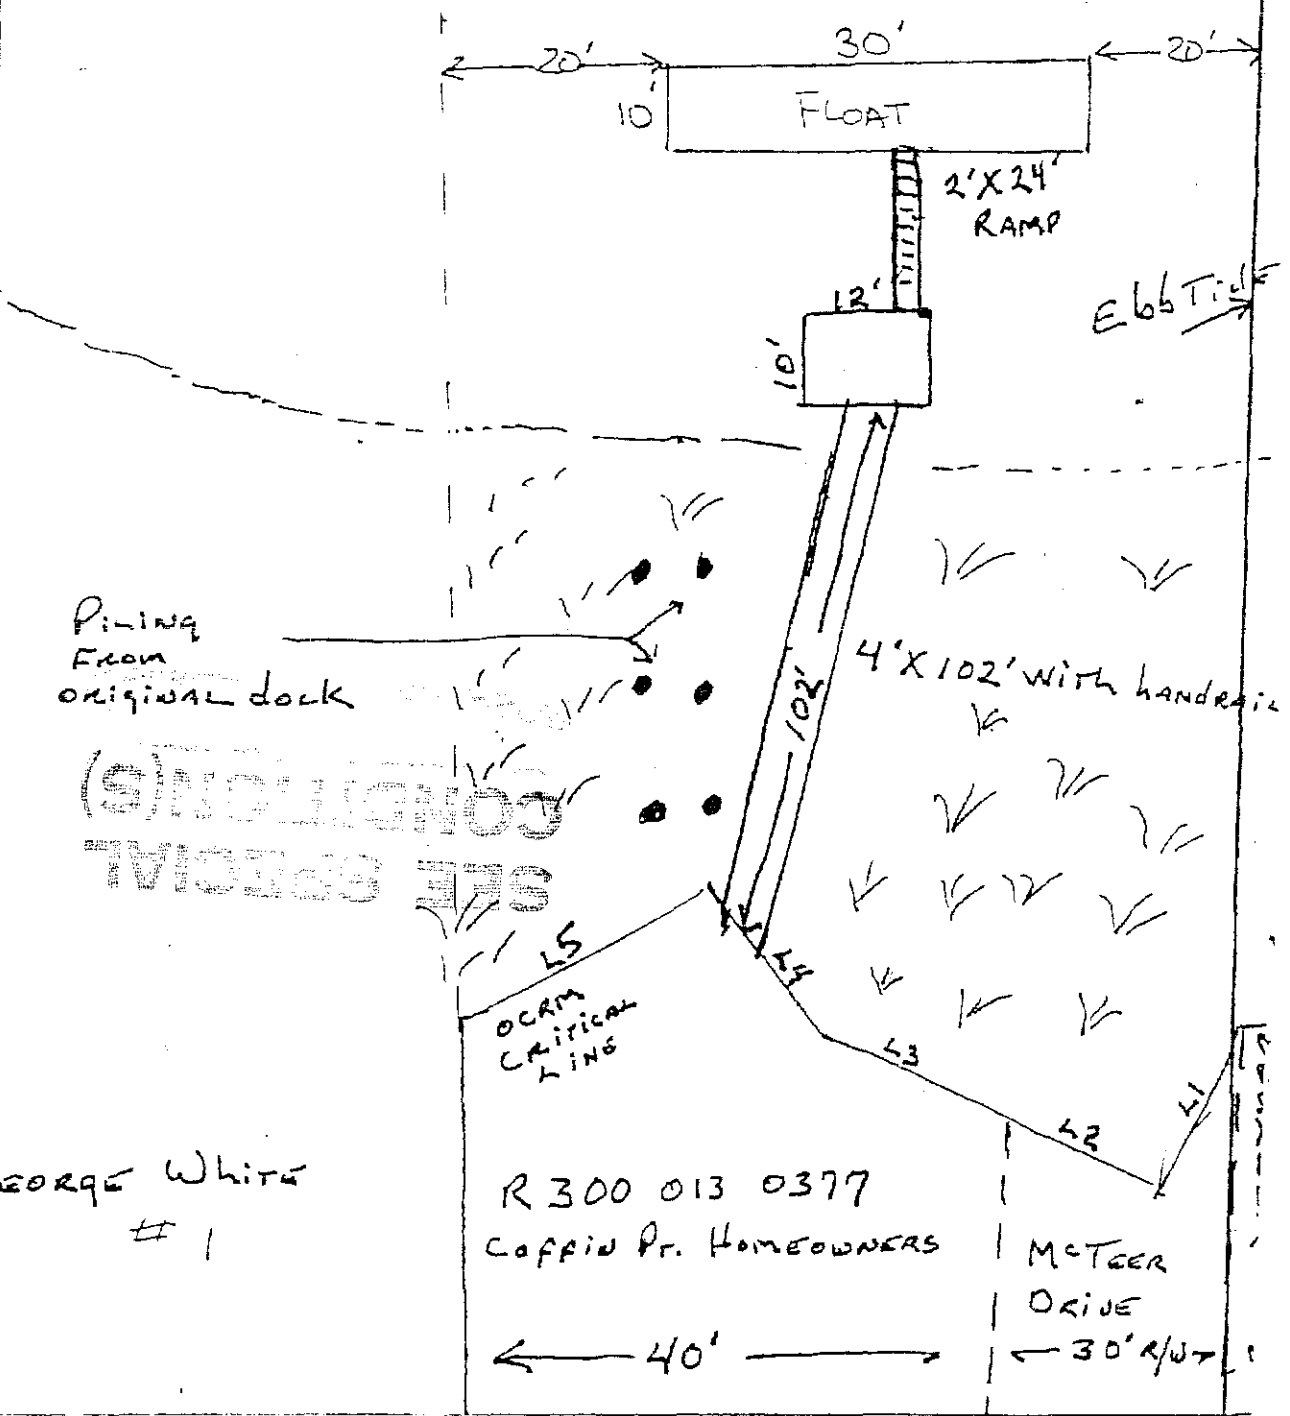 20'
30'
20'
10'
FLOAT
2'X24'
RAMP
Ebb Tide
12'
10'
Piling
From
original dock
4'X102' with handrail
102'
SEE SPECIAL
CONDITION(S)
L5
L4
OCRM
Critical
Line
L3
L2
L1
George White
# 1
R300 013 0377
Coffin Pt. Homeowners
McTeer
Drive
40'
30' R/W